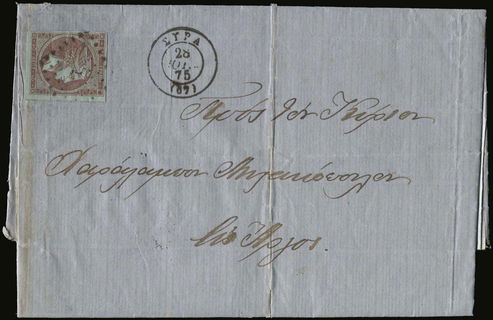 ΣΥΡΑ
28
75
(67)
Πρὸς τὸν Κύριον
Χαράλαμπον
Εἰς Ἄργος.